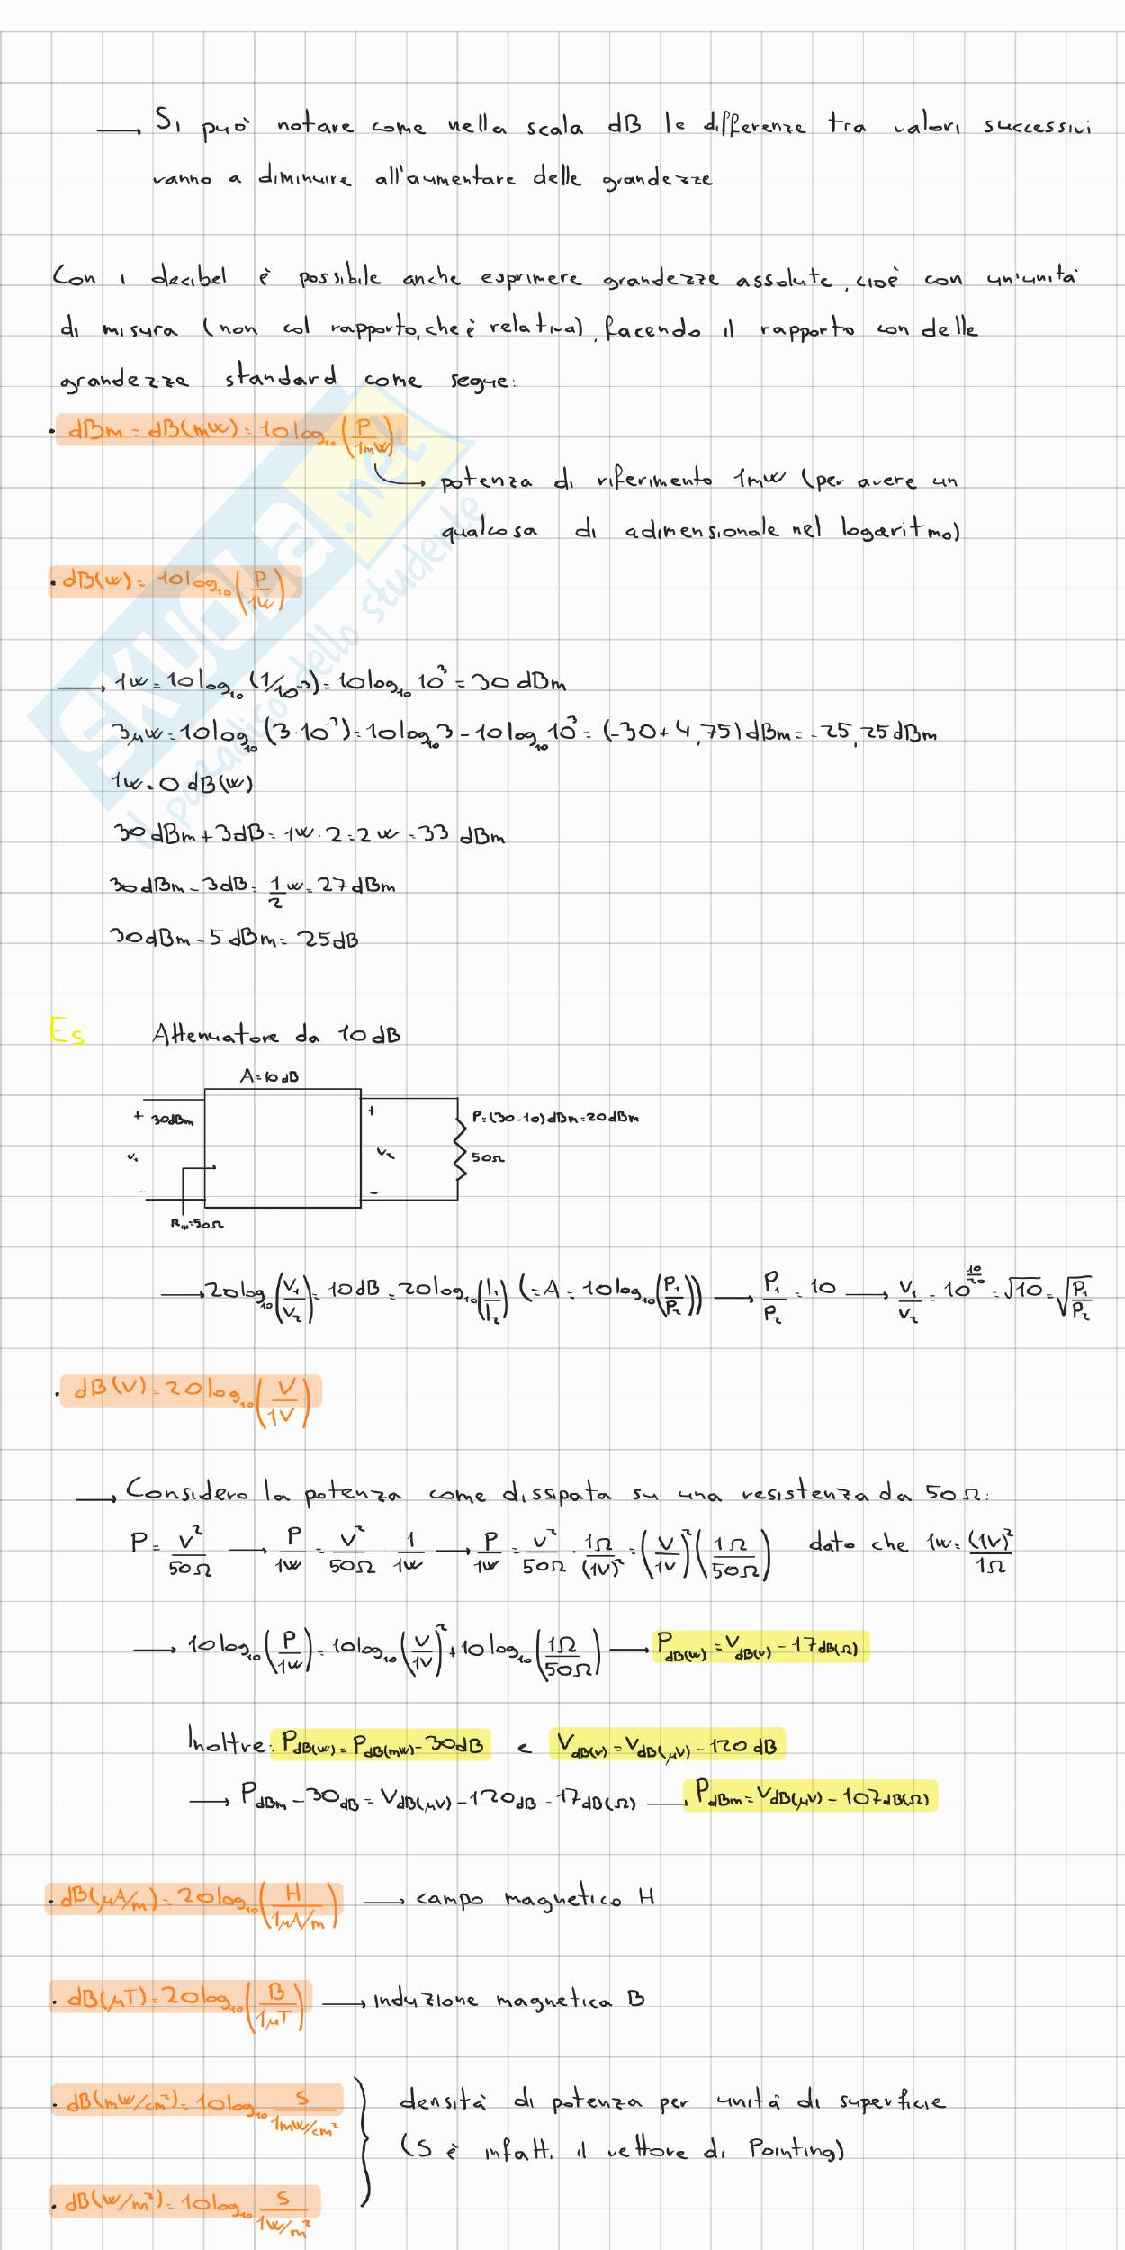 → Si può notare come nella scala dB le differenze tra valori successivi
vanno a diminuire all'aumentare delle grandezze
Con i decibel è possibile anche esprimere grandezze assolute, cioè con un'unità
di misura (non col rapporto, che è relativa), facendo il rapporto con delle
grandezze standard come segue:
• dBm = dB(mW) = 10log₁₀(P/1mW)
→ potenza di riferimento 1mW (per avere un
qualcosa di adimensionale nel logaritmo)
• dB(W) = 10log₁₀(P/1W)
→ 1W = 10log₁₀(1/10⁻³) = 10log₁₀10³ = 30dBm
3μW = 10log₁₀(3·10⁻³) = 10log₁₀3 - 10log₁₀10³ = (-30+4,75)dBm = -25,25dBm
1W = 0 dB(W)
30dBm + 3dB = 1W·2 = 2W = 33 dBm
30dBm - 3dB = 1/2 W = 27dBm
30dBm - 5dBm = 25dB
Es Attenuatore da 10dB
A=10dB
+ 30dBm + P=(30-10)dBm=20dBm
V₁ V₂ 50Ω
- -
Rin=50Ω
→ 20log₁₀(V₁/V₂) = 10dB = 20log₁₀(I₁/I₂) (=A=10log₁₀(P₁/P₂)) → P₁/P₂ = 10 → V₁/V₂ = 10^(10/20) = √10 = √(P₁/P₂)
• dB(V) = 20log₁₀(V/1V)
→ Considero la potenza come dissipata su una resistenza da 50Ω:
P = V²/50Ω → P/1W = V²/50Ω · 1/1W → P/1W = V²/50Ω · 1Ω/(1V)² = (V/1V)²(1Ω/50Ω) dato che 1W = (1V)²/1Ω
→ 10log₁₀(P/1W) = 10log₁₀(V/1V)² + 10log₁₀(1Ω/50Ω) → P dB(W) = V dB(V) - 17dB(Ω)
Inoltre: P dB(W) = P dB(mW) - 30dB e V dB(V) = V dB(μV) - 120dB
→ P dBm - 30dB = V dB(μV) - 120dB - 17dB(Ω) → P dBm = V dB(μV) - 107dB(Ω)
• dB(μA/m) = 20log₁₀(H/1μA/m) → campo magnetico H
• dB(μT) = 20log₁₀(B/1μT) → induzione magnetica B
• dB(mW/cm²) = 10log₁₀ S/1mW/cm² densità di potenza per unità di superficie
(S è infatti il vettore di Pointing)
• dB(W/m²) = 10log₁₀ S/1W/m²
SKUOLA.net
il paradiso dello studente